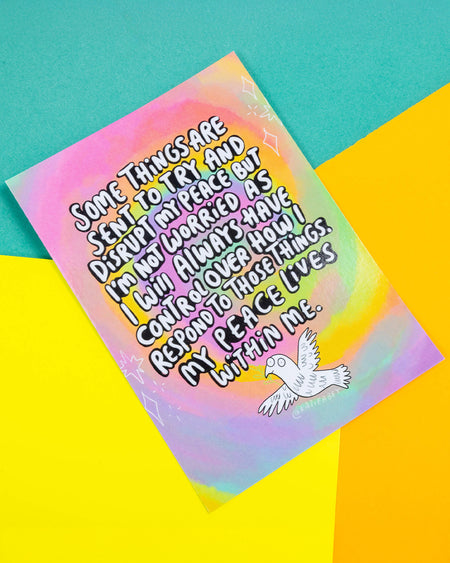 SOME THINGS ARE
SENT TO TRY AND
DISRUPT MY PEACE BUT
I'M NOT WORRIED AS
I WILL ALWAYS HAVE
CONTROL OVER HOW I
RESPOND TO THOSE THINGS.
MY PEACE LIVES
WITHIN ME.